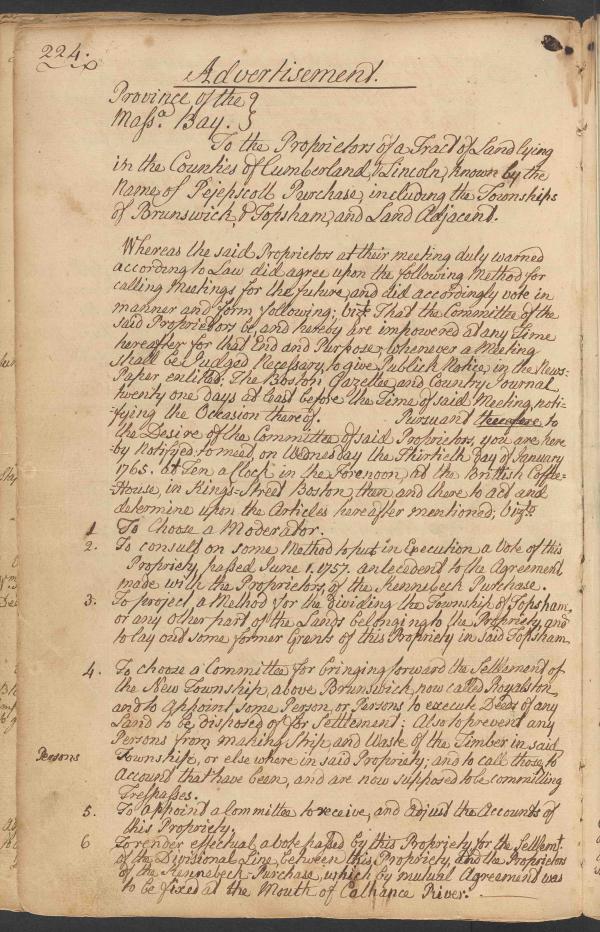 224.
Advertisement.
Province of the }
Mass.a Bay. }
To the Proprietors of a Tract of Land lying
in the Counties of Cumberland & Lincoln, known by the
Name of Pejepscott Purchase, including the Townships
of Brunswick, & Topsham, and Land Adjacent.
Whereas the said Proprietors at their meeting duly warned
according to Law did agree upon the following Method for
calling Meetings for the future, and did accordingly vote in
manner and form following; vizt. That the Committee of the
said Proprietors be, and hereby are impowered at any Time
hereafter for that End and Purpose, whenever a Meeting
shall be Judged Necessary, to give Publick Notice, in the News-
Paper entitled; The Boston Gazettee and Country Journal
twenty one days at least before the Time of said Meeting, noti-
-fying the Occasion thereof. Pursuant therefore to
the Desire of the Committee of said Proprietors, you are here
-by Notifyed to meet, on Wednesday the Thirtieth Day of January
1765. at Ten a Clock in the Forenoon, at the Brittish Coffee-
-House, in Kings-Street Boston, then and there to act and
determine upon the Articles hereafter mentioned; vizt.
1 To Choose a Moderator.
2. To consult on some Method to put in Execution a Vote of this
Propriety, passed June 1, 1757. antecedent to the Agreement
made with the Proprietors, of the Kennebeck Purchase.
3. To project, a Method for the Dividing the Township of Topsham,
or any other part of the Lands belonging to the Propriety, and
to lay out some former Grants of this Propriety in said Topsham
4. To choose a Committee for bringing forward the Settlement of
the New Township, above Brunswick, now called Royalston,
and to appoint some Person, or Persons to execute Deeds of any
Land to be disposed of for Settlement; Also to prevent any
Persons from making Strip and Waste of the Timber in said
Persons Township, or else where in said Propriety; and to call those to
Account that have been, and are now supposed to be committing
Trespasses.
5. To appoint a Committee to receive, and adjust the Accounts of
this Propriety.
6 To render effectual a vote passed by this Propriety for the Settlemt.
of the Divisional Line, between this Propriety, and the Proprietors
of the Kennebeck-Purchase, which by mutual Agreement was
to be fixed at the Mouth of Cathance River.